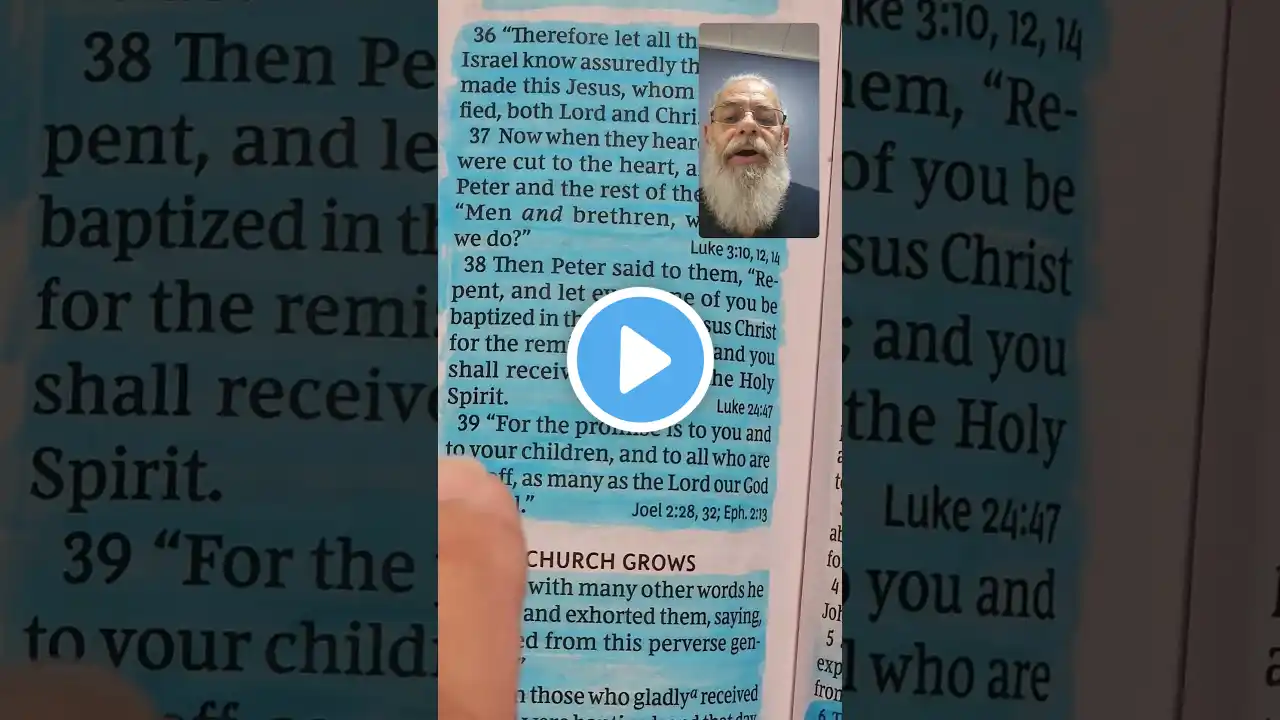 36 “Therefore let all th
Israel know assuredly th
made this Jesus, whom
fied, both Lord and Chri
37 Now when they hear
were cut to the heart, a
Peter and the rest of the
“Men and brethren, w
we do?” Luke 3:10, 12, 14
38 Then Peter said to them, “Re-
pent, and let e e of you be
baptized in th sus Christ
for the rem and you
shall receiv he Holy
Spirit. Luke 24:47
39 “For the promise is to you and
to your children, and to all who are
off, as many as the Lord our God
.” Joel 2:28, 32; Eph. 2:13
CHURCH GROWS
with many other words he
and exhorted them, saying,
ed from this perverse gen-
”
n those who gladlyᵃ received
38 Then Pe
pent, and le
baptized in th
for the remi
shall receiv
Spirit.
39 “For the
to your child
off
ke 3:10, 12, 14
hem, “Re-
of you be
sus Christ
; and you
the Holy
Luke 24:47
you and
who are